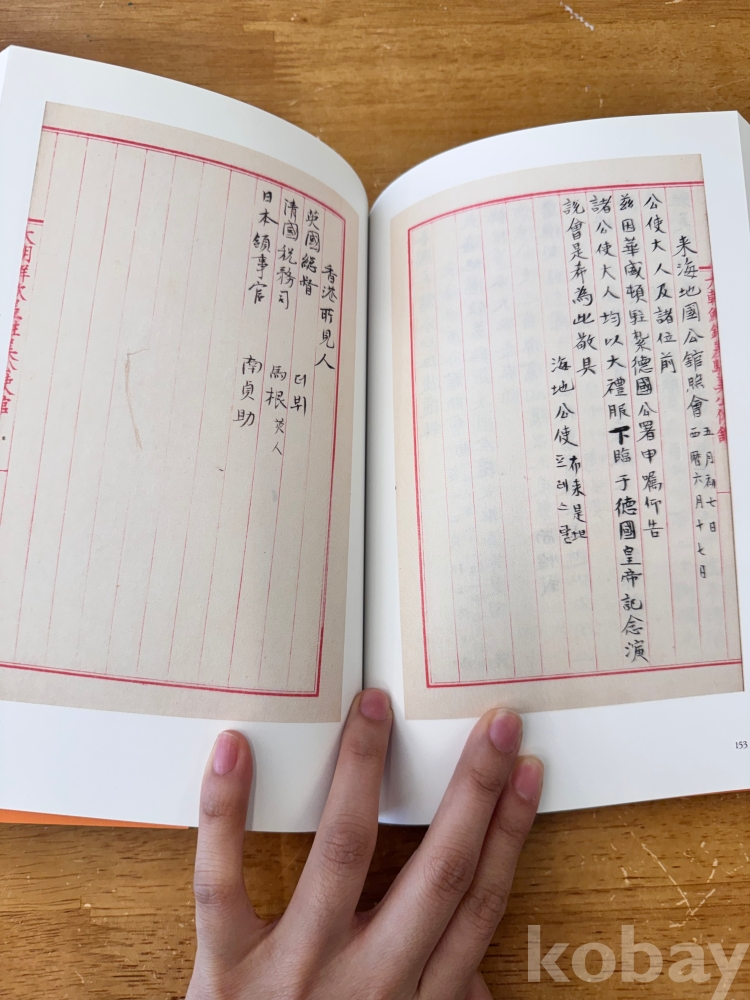 来海地國公館照會 五月初七日
西曆六月十七日
公使大人及諸位前
茲因華盛頓駐紮德國公署申囑仰告
諸公使大人均以大禮服下臨于德國皇帝記念演
說會是希為此敬具
海地公使 프레스탈 布来是坦
153
香港所見人
英國總督 더뷔
清國稅務司 馬根 英人
日本領事官 南貞助
kobay